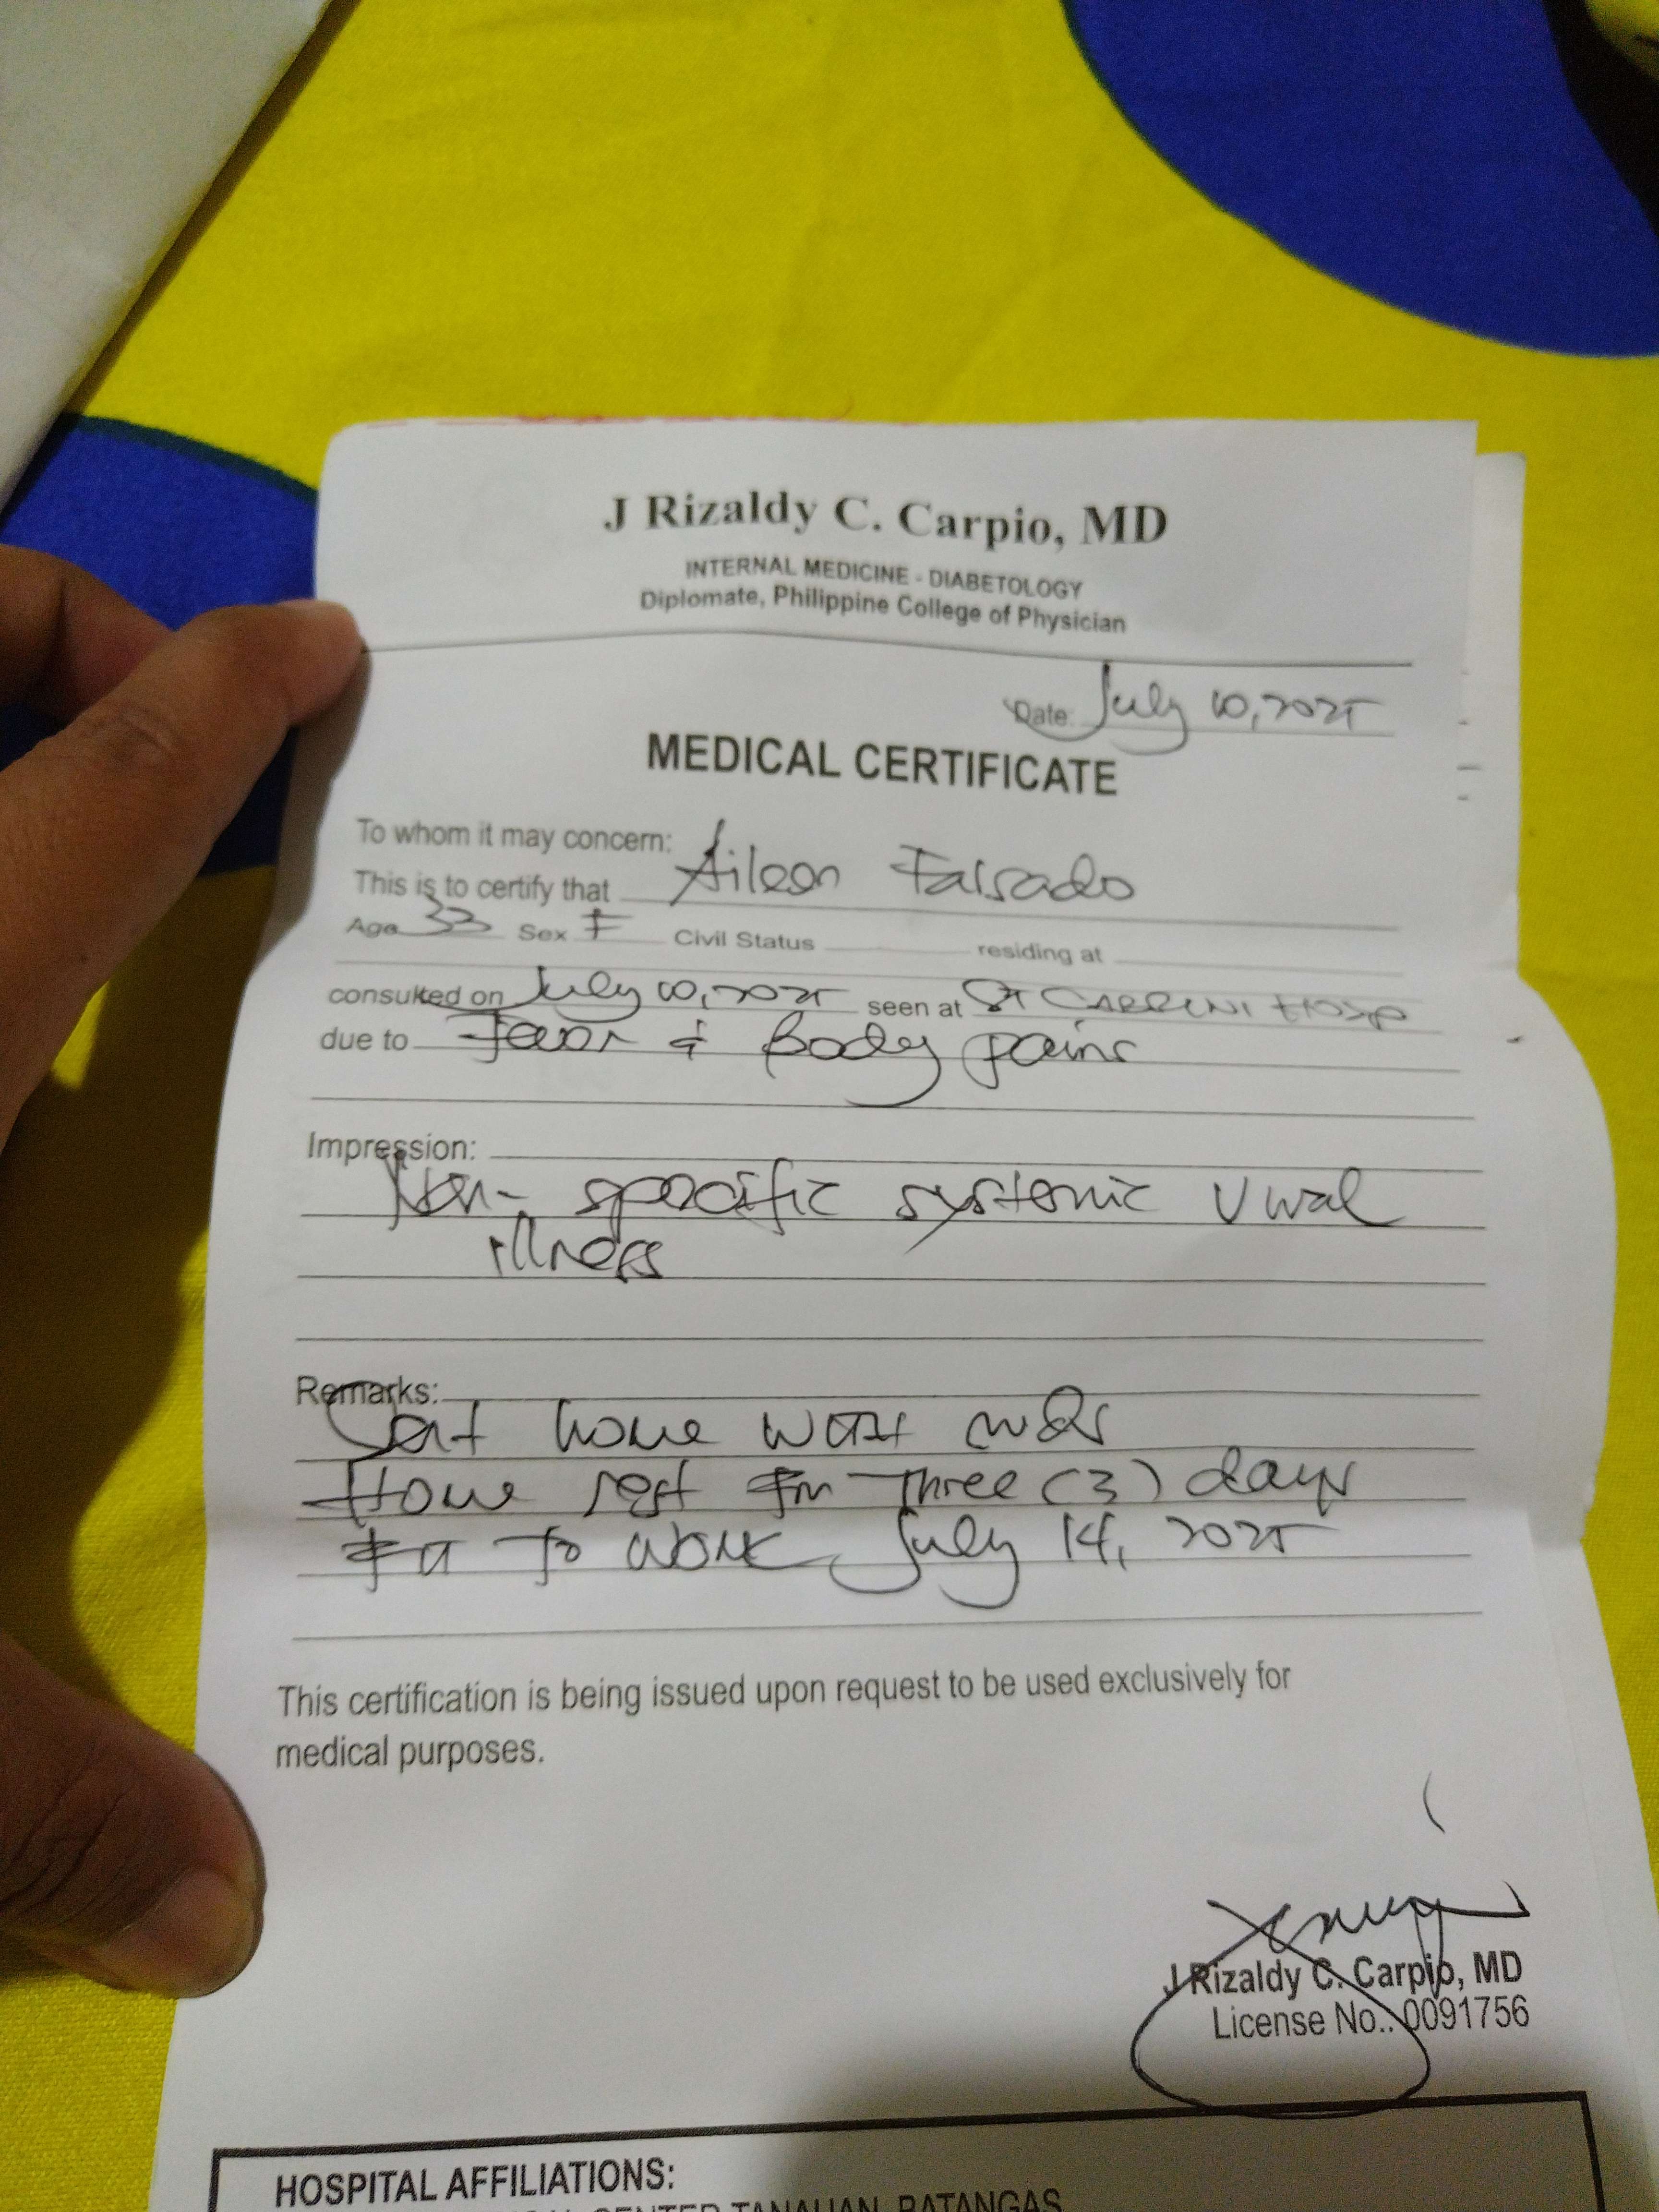 J Rizaldy C. Carpio, MD
INTERNAL MEDICINE - DIABETOLOGY
Diplomate, Philippine College of Physician
Date: July 10, 2025
MEDICAL CERTIFICATE
To whom it may concern:
This is to certify that Aileen Falsado
Age 33 Sex F Civil Status residing at
consulted on July 10, 2025 seen at St Hosp
due to Fever & Body pains
Impression:
Non-specific systemic viral
illness
Remarks:
Sent home with meds
Home rest for Three (3) days
Fit to work July 14, 2025
This certification is being issued upon request to be used exclusively for
medical purposes.
J Rizaldy C. Carpio, MD
License No.. 0091756
HOSPITAL AFFILIATIONS:
CENTER TANAUAN, BATANGAS